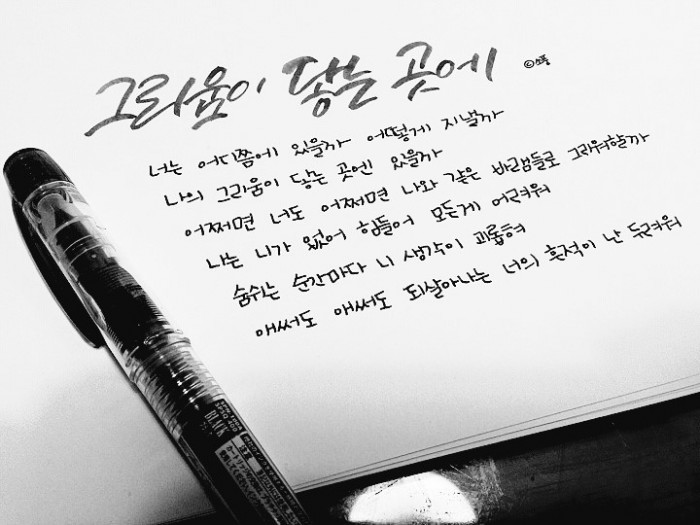 그리움이 닿는 곳에 ©소풍
너는 어디쯤에 있을까 어떻게 지낼까
나의 그리움이 닿는 곳엔 있을까
어쩌면 너도 어쩌면 나와 같은 바램들로 그리워할까
나는 니가 없어 힘들어 모든게 어려워
숨쉬는 순간마다 니 생각이 괴롭혀
애써도 애써도 되살아나는 너의 흔적이 난 두려워
BLACK